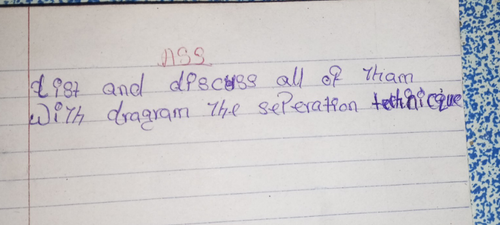 ASS
List and discuss all of tham
With dragram the seperation technicque